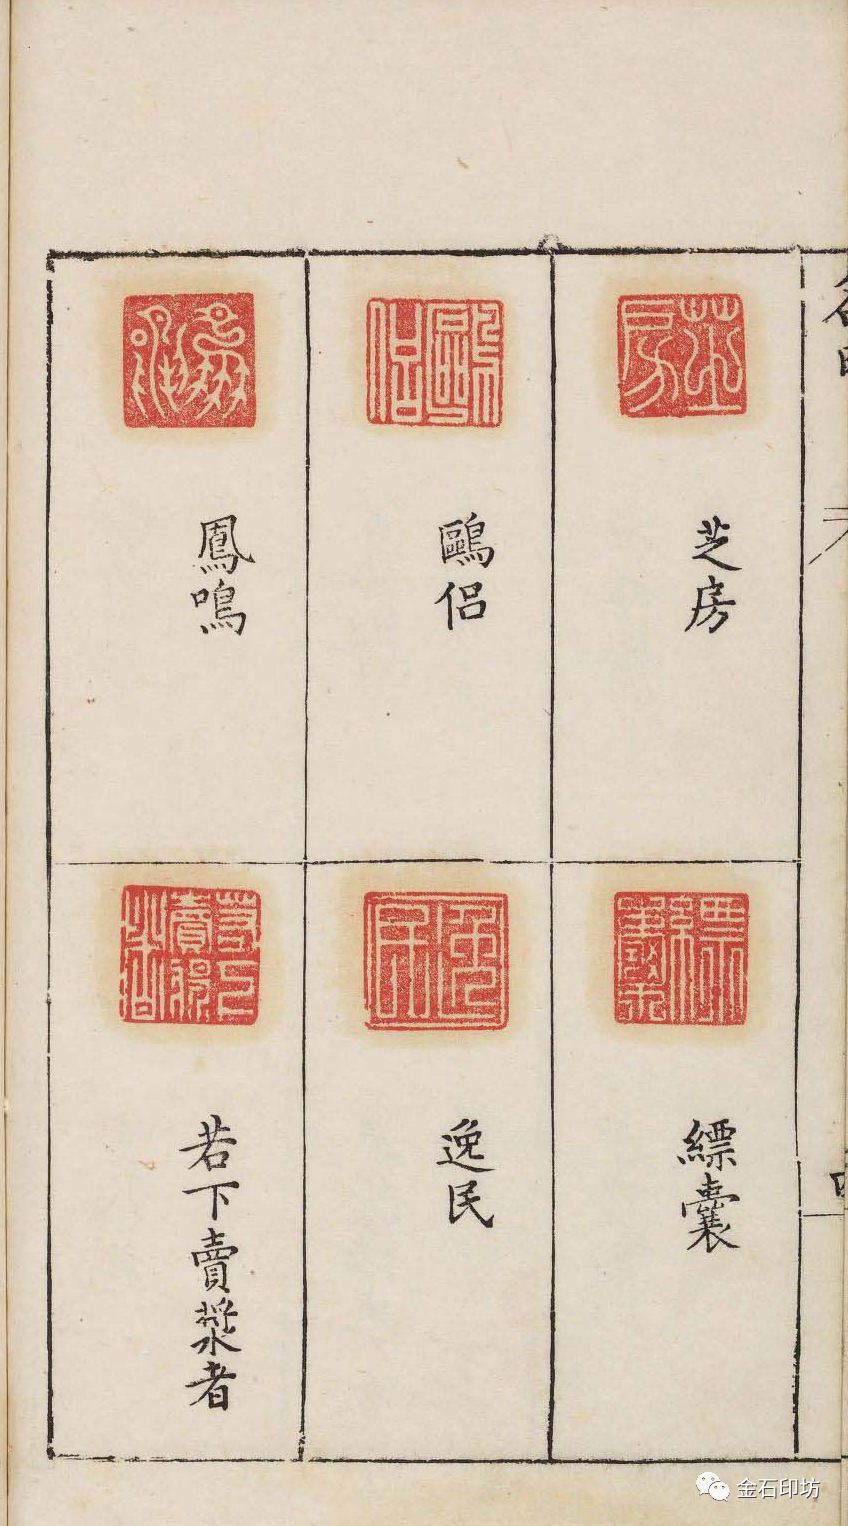 芝房
鷗侶
鳳鳴
縹囊
逸民
若下賣漿者
金石印坊